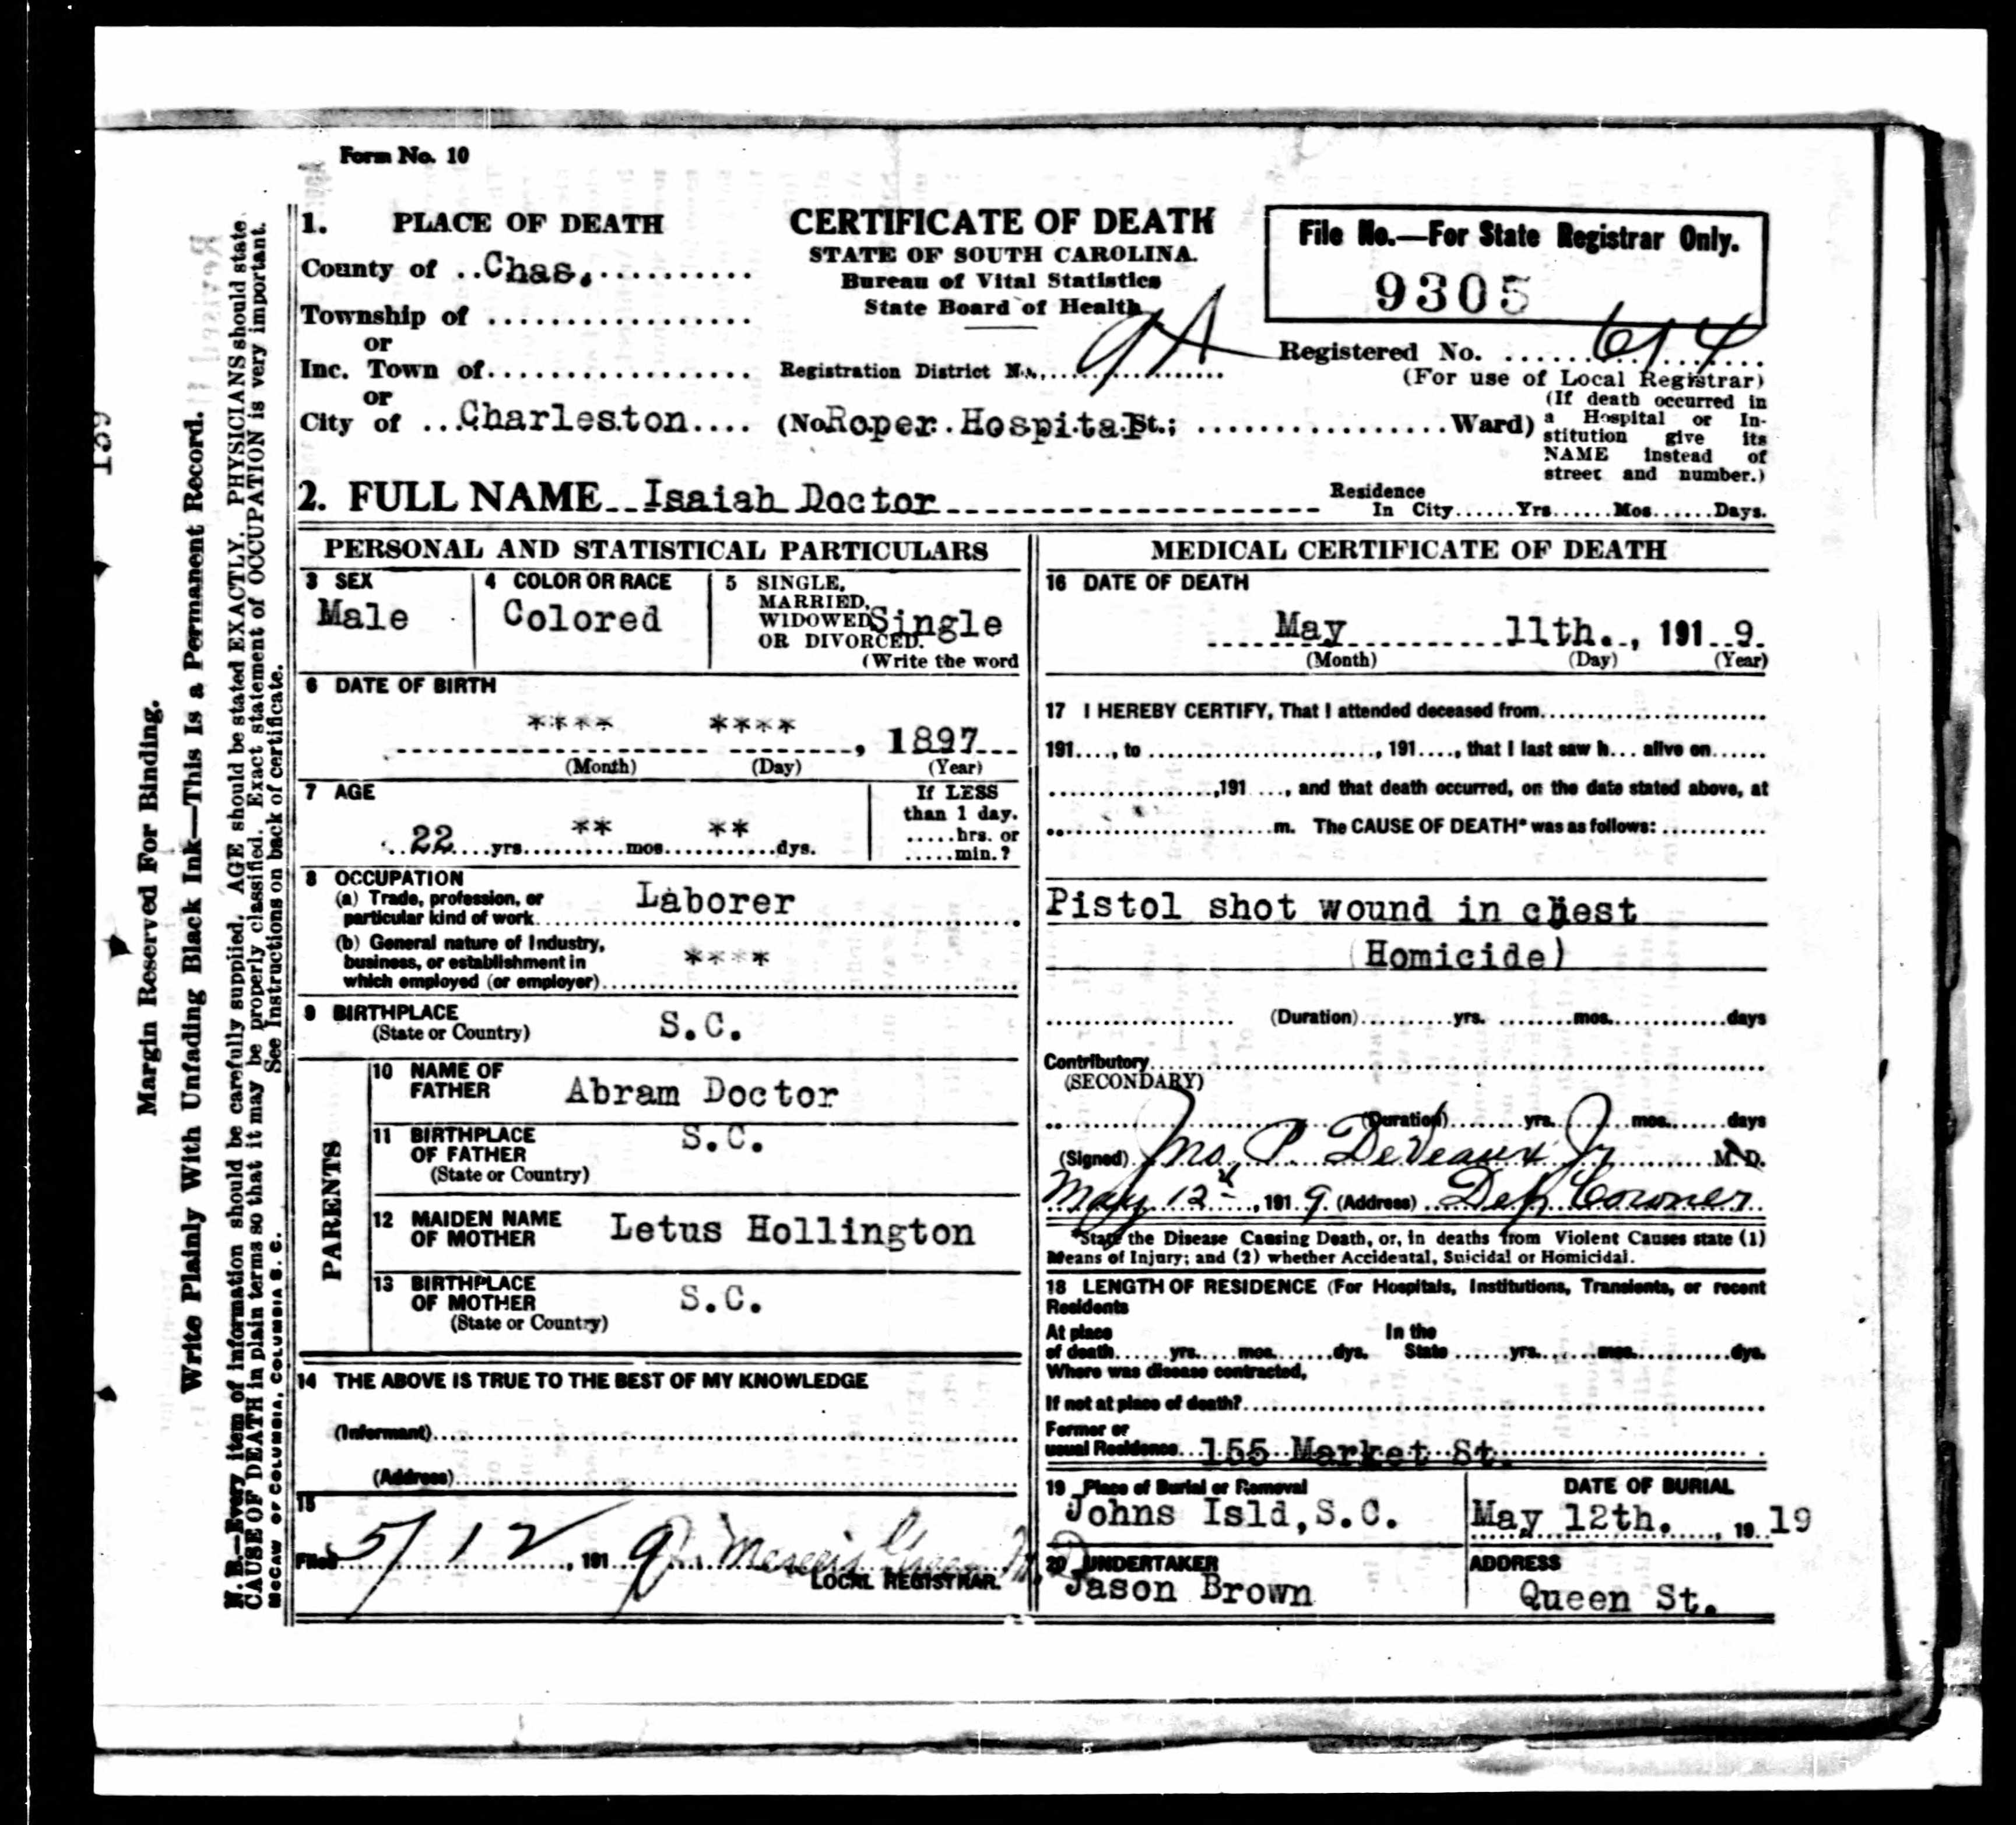 Form No. 10
1. PLACE OF DEATH
County of ..Chas...........
Township of ..................
or
Inc. Town of..................
or
City of ...Charleston....
CERTIFICATE OF DEATH
STATE OF SOUTH CAROLINA.
Bureau of Vital Statistics
State Board of Health
Registration District No. 9A
(No. Roper Hospital St.; ................Ward)
File No.—For State Registrar Only.
9305
Registered No. 614
(For use of Local Registrar)
(If death occurred in
a Hospital or In-
stitution give its
NAME instead of
street and number.)
2. FULL NAME Isaiah Doctor
Residence
In City......Yrs......Mos......Days.
PERSONAL AND STATISTICAL PARTICULARS
3 SEX
Male
4 COLOR OR RACE
Colored
5 SINGLE,
MARRIED,
WIDOWED
OR DIVORCED.
Single
(Write the word
6 DATE OF BIRTH
**** **** , 1897
(Month) (Day) (Year)
7 AGE
22 yrs. ** mos. ** dys.
If LESS
than 1 day.
.....hrs. or
.....min.?
8 OCCUPATION
(a) Trade, profession, or
particular kind of work
Laborer
(b) General nature of Industry,
business, or establishment in
which employed (or employer)
****
9 BIRTHPLACE
(State or Country)
S.C.
PARENTS
10 NAME OF
FATHER
Abram Doctor
11 BIRTHPLACE
OF FATHER
(State or Country)
S.C.
12 MAIDEN NAME
OF MOTHER
Letus Hollington
13 BIRTHPLACE
OF MOTHER
(State or Country)
S.C.
14 THE ABOVE IS TRUE TO THE BEST OF MY KNOWLEDGE
(Informant)
(Address)
15
Filed 5/12, 1919
LOCAL REGISTRAR.
MEDICAL CERTIFICATE OF DEATH
16 DATE OF DEATH
May 11th., 1919.
(Month) (Day) (Year)
17 I HEREBY CERTIFY, That I attended deceased from
191...., to ......................, 191...., that I last saw h... alive on......
................,191 ...., and that death occurred, on the date stated above, at
......................m. The CAUSE OF DEATH* was as follows: ...........
Pistol shot wound in chest
(Homicide)
(Duration)..........yrs. ........mos............days
Contributory
(SECONDARY)
(Duration)..........yrs..........mos.......days
(Signed) Jno. P. DeVeaux Jr M. D.
May 12th, 1919. (Address) Dep Coroner
*State the Disease Causing Death, or, in deaths from Violent Causes state (1)
Means of Injury; and (2) whether Accidental, Suicidal or Homicidal.
18 LENGTH OF RESIDENCE (For Hospitals, Institutions, Transients, or recent
Residents
At place In the
of death......yrs.....mos.......dys. State ......yrs.......mos...........dys.
Where was disease contracted,
If not at place of death?
Former or
usual Residence 155 Market St.
19 Place of Burial or Removal
Johns Isld, S.C.
DATE OF BURIAL
May 12th. , 19 19
20 UNDERTAKER
Jason Brown
ADDRESS
Queen St.
Margin Reserved For Binding.
Write Plainly With Unfading Black Ink—This Is a Permanent Record.
N. B.—Every item of information should be carefully supplied. AGE should be stated EXACTLY. PHYSICIANS should state
CAUSE OF DEATH in plain terms so that it may be properly classified. Exact statement of OCCUPATION is very important.
See Instructions on back of certificate.
McCAW OF COLUMBIA, COLUMBIA S. C.